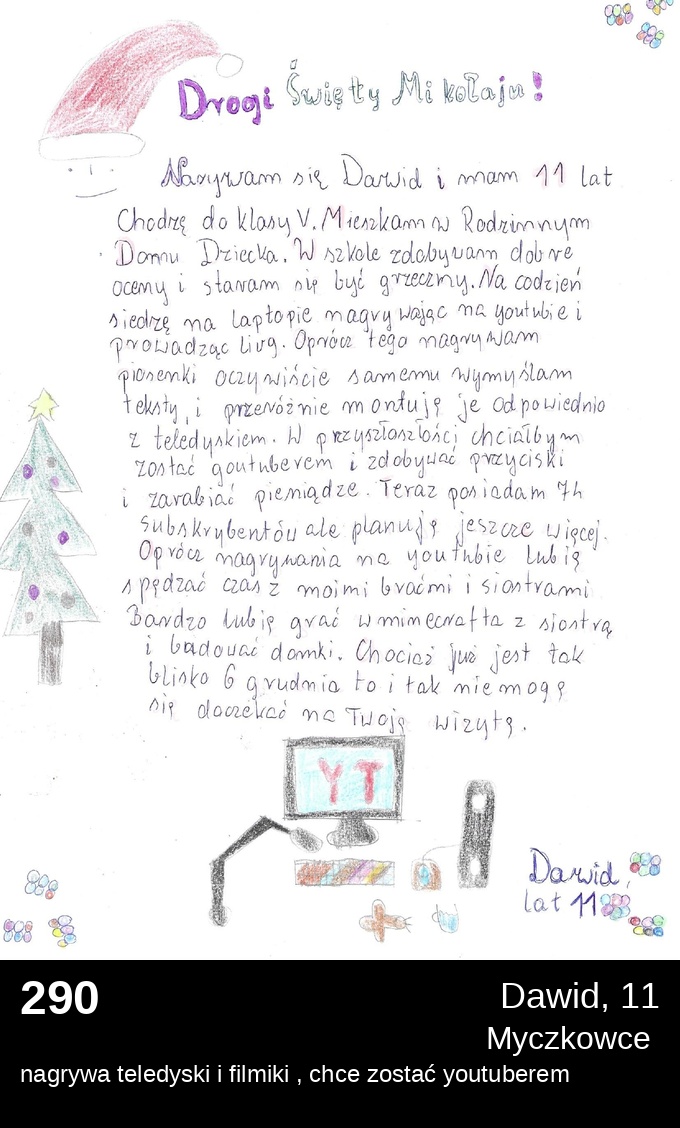 Drogi Święty Mikołaju!
Nazywam się Dawid i mam 11 lat
Chodzę do klasy V. Mieszkam w Rodzinnym
Domu Dziecka. W szkole zdobywam dobre
oceny i staram się być grzeczny. Na codzień
siedzę na laptopie nagrywając na youtubie i
prowadząc livy. Oprócz tego nagrywam
piosenki oczywiście samemu wymyślam
teksty, i przeróżnie montuję je odpowiednio
z teledyskiem. W przyszłoszłości chciałbym
zostać youtuberem i zdobywać przyciski
i zarabiać pieniądze. Teraz posiadam
subskrybentów ale planuję jeszcze więcej.
Oprócz nagrywania na youtubie lubię
spędzać czas z moimi braćmi i siostrami
Bardzo lubię grać w minecrafta z siostrą
i badować domki. Chociaż już jest tak
blisko 6 grudnia to i tak nie mogę
się doczekać na Twoją wizytę.
YT
Dawid,
lat 11
290
Dawid, 11
Myczkowce
nagrywa teledyski i filmiki , chce zostać youtuberem